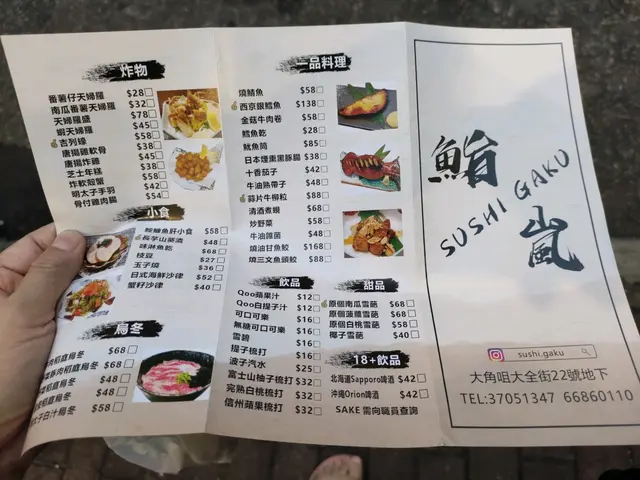 炸物
番薯仔天婦羅 $28
南瓜番薯天婦羅 $32
天婦羅盛 $78
蝦天婦羅 $45
吉列蠔 $58
唐揚雞軟骨 $38
唐揚炸雞 $45
芝士年糕 $38
炸軟殼蟹 $58
明太子手羽 $42
骨付雞肉腸 $54
小食
鮟鱇魚肝小食 $58
長芋山葵漬 $48
味淋魚乾 $68
枝豆 $27
玉子燒 $36
日式海鮮沙律 $52
蟹籽沙律 $40
烏冬
稻庭烏冬 $68
稻庭烏冬 $68
稻庭烏冬 $48
稻庭烏冬 $48
白汁烏冬 $58
一品料理
燒鯖魚 $58
西京銀鱈魚 $138
金菇牛肉卷 $58
鱈魚乾 $28
魷魚筒 $85
日本煙熏黑豚腸 $38
十香茄子 $42
牛油熟帶子 $48
蒜片牛柳粒 $88
清酒煮蜆 $68
炒野菜 $58
牛油雜菌 $48
燒油甘魚鮫 $168
燒三文魚頭鮫 $88
飲品
Qoo蘋果汁 $12
Qoo白提子汁 $12
可口可樂 $16
無糖可口可樂 $16
雪碧 $16
提子梳打 $16
波子汽水 $25
富士山柚子梳打 $32
完熟白桃梳打 $32
信州蘋果梳打 $32
甜品
原個南瓜雪葩 $68
原個菠蘿雪葩 $68
原個白桃雪葩 $58
椰子雪葩 $40
18+飲品
北海道Sapporo啤酒 $42
沖繩Orion啤酒 $42
SAKE 需向職員查詢
鮨
SUSHI GAKU
嵐
sushi.gaku
大角咀大全街22號地下
TEL:37051347 66860110